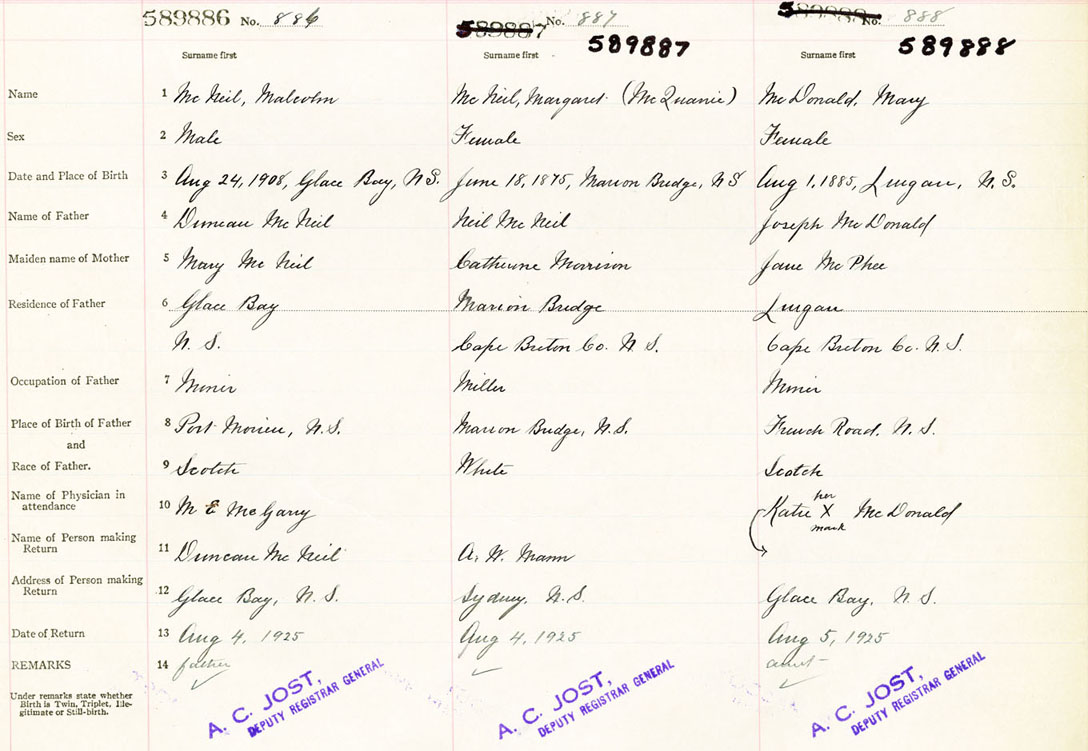 589886 No. 886
589887 No. 887
589887
589888 No. 888
589888
Surname first Surname first Surname first
Name 1 Mc Neil, Malcolm Mc Neil, Margaret (McQuarrie) Mc Donald, Mary
Sex 2 Male Female Female
Date and Place of Birth 3 Aug 24, 1908, Glace Bay, N.S. June 18, 1875, Marion Bridge, N S Aug 1, 1885, Lingan, N.S.
Name of Father 4 Duncan Mc Neil Neil Mc Neil Joseph McDonald
Maiden name of Mother 5 Mary Mc Neil Catherine Morrison Jane Mc Phee
Residence of Father 6 Glace Bay Marion Bridge Lingan
N. S. Cape Breton Co. N. S. Cape Breton Co. N. S.
Occupation of Father 7 Miner Miller Miner
Place of Birth of Father 8 Port Morien, N.S. Marion Bridge, N.S. French Road, N. S.
and
Race of Father. 9 Scotch White Scotch
Name of Physician in
attendance 10 M E McGarry Katie her X mark McDonald
Name of Person making
Return 11 Duncan Mc Neil A. W. Mann
Address of Person making
Return 12 Glace Bay, N. S. Sydney, N.S. Glace Bay, N. S.
Date of Return 13 Aug 4, 1925 Aug 4, 1925 Aug 5, 1925
REMARKS 14 father aunt
Under remarks state whether
Birth is Twin, Triplet, Ille-
gitimate or Still-birth.
A. C. JOST,
DEPUTY REGISTRAR GENERAL
A. C. JOST,
DEPUTY REGISTRAR GENERAL
A. C. JOST,
DEPUTY REGISTRAR GENERAL